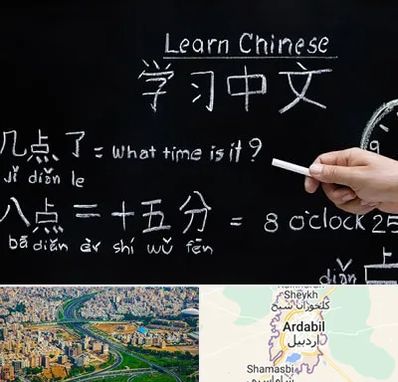 Learn Chinese
学习中文
9
几点了 = What time is it ?
Jǐ diǎn le
八点二十五分 = 8 o'clock 25
bā diǎn èr shí wǔ fēn
diǎn
Sheykh
کلخوران شیخ
Ardabil
اردبیل
Shamasbi